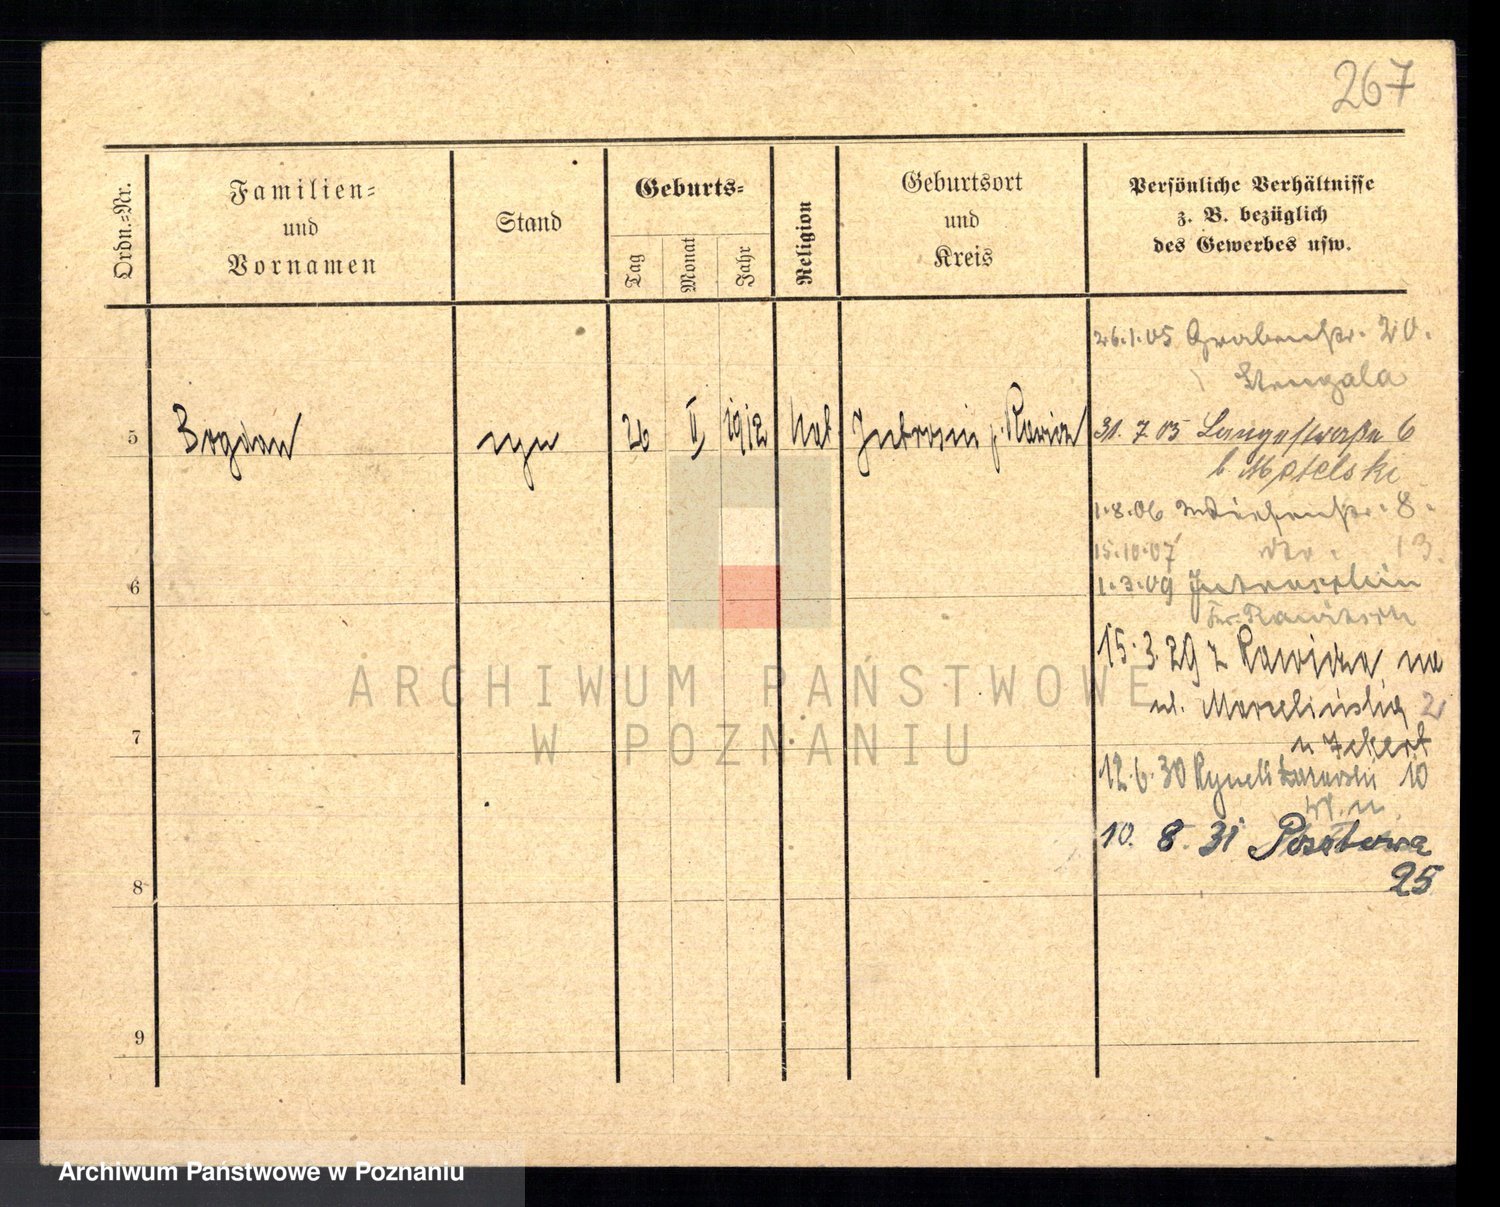 267
Ordn.=Nr.
Familien=
und
Vornamen
Stand
Geburts=
Tag
Monat
Jahr
Religion
Geburtsort
und
Kreis
Persönliche Verhältnisse
z. B. bezüglich
des Gewerbes usw.
26.1.05 Grabenstr. 20.
31. 7 05 Langestraße 6
b. Motelski
5 Bogdan syn 26 II 1912 kat Jutrosin p. Rawicz
1.8.06 Wiesenstr. 8.
15.10.07 13.
6
1.3.09 Jutroschin
Kr. Rawitsch
15.3.29 z Rawicza, na
ul. Marcelińską 2
7
12.6.30 Rynek Łazarski 10
10. 8. 31 Pocztowa
25
8
9
ARCHIWUM PAŃSTWOWE
W POZNANIU
Archiwum Państwowe w Poznaniu